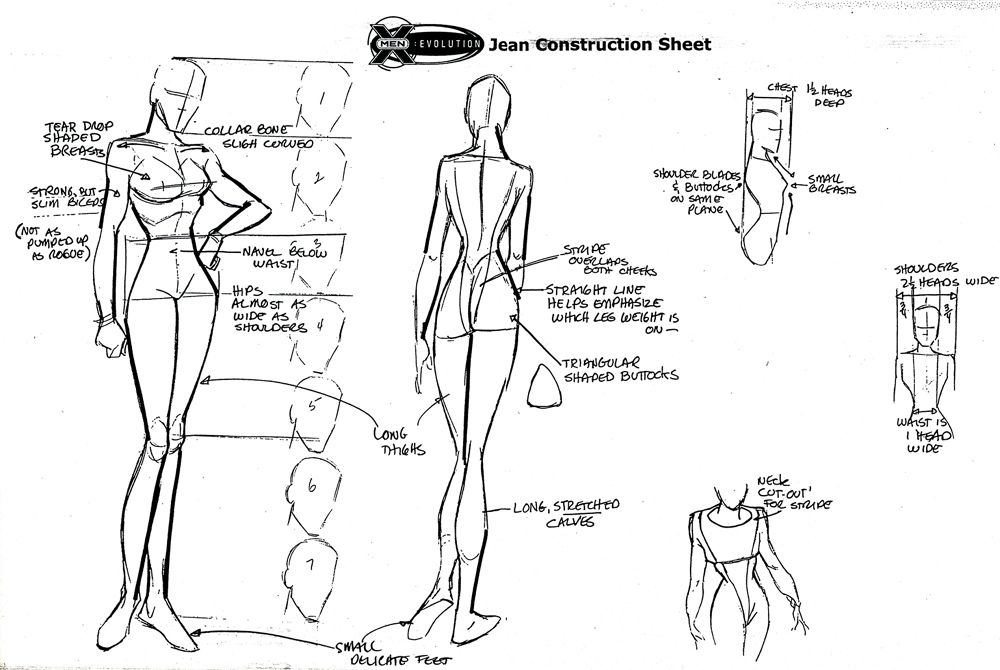 X MEN : EVOLUTION Jean Construction Sheet
TEAR DROP
SHAPED
BREASTS
COLLAR BONE
SLIGH CURVED
STRONG, BUT
SLIM BICEPS
(NOT AS
PUMPED UP
AS ROGUE)
NAVEL BELOW
WAIST
HIPS
ALMOST AS
WIDE AS
SHOULDERS
1
2
3
4
5
6
7
LONG
THIGHS
SMALL
DELICATE FEET
STRIPE
OVERLAPS
BOTH CHEEKS
STRAIGHT LINE
HELPS EMPHASIZE
WHICH LEG WEIGHT IS
ON —
TRIANGULAR
SHAPED BUTTOCKS
LONG, STRETCHED
CALVES
CHEST 1½ HEADS
DEEP
SHOULDER BLADES
& BUTTOCKS
ON SAME
PLANE
SMALL
BREASTS
SHOULDERS
2½ HEADS WIDE
¾ 1 ¾
WAIST IS
1 HEAD
WIDE
NECK
'CUT-OUT'
FOR STRIPE